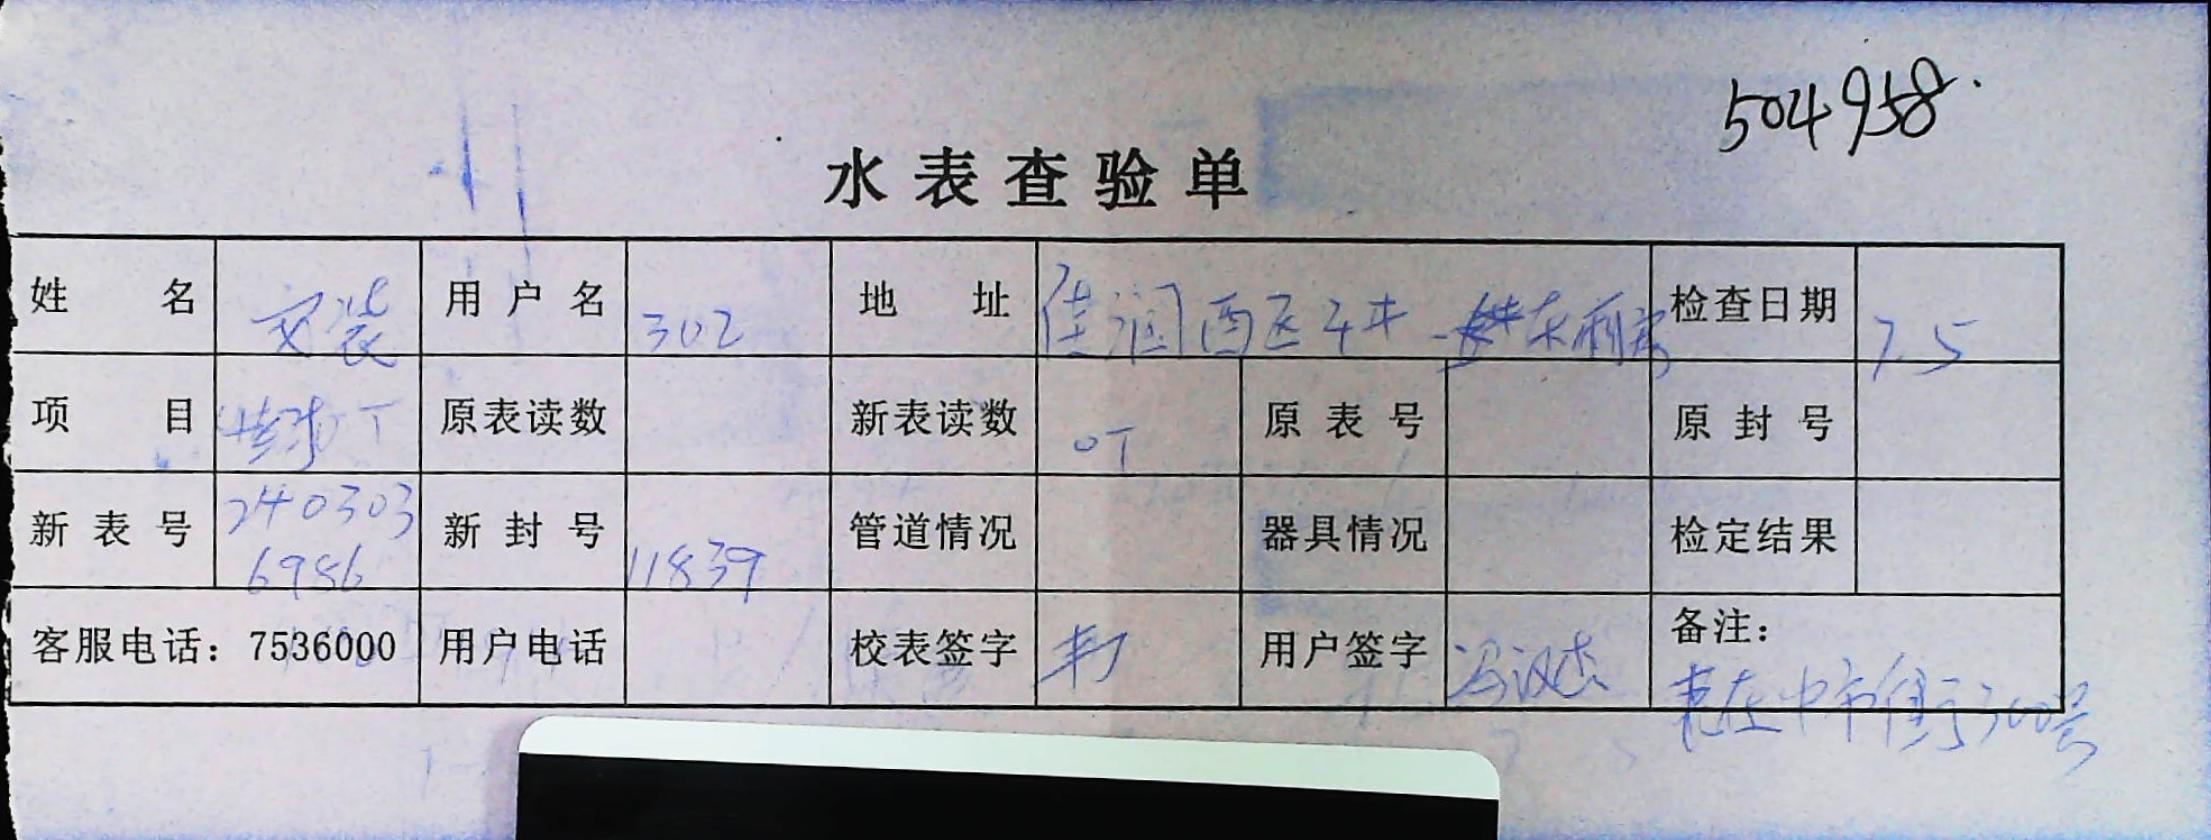 504958.
水表查验单
姓名 用户名 302 地址 佳润西区4# 检查日期 7.5
项目 原表读数 新表读数 0T 原表号 原封号
新表号 2403036986 新封号 11839 管道情况 器具情况 检定结果
客服电话：7536000 用户电话 校表签字 用户签字 冯汉杰 备注：
表在中市街300号